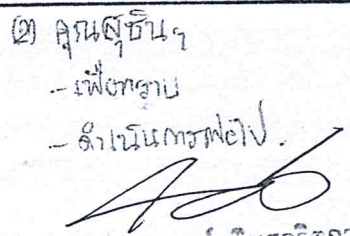 (2) คุณสุชินฯ
- เพื่อทราบ
- ดำเนินการต่อไป.